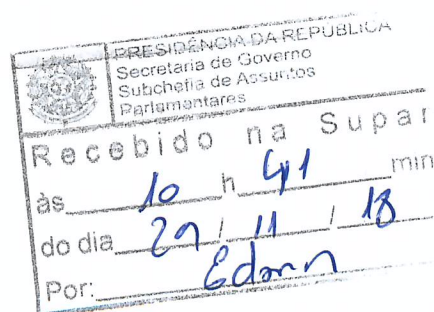 PRESIDÊNCIA DA REPÚBLICA
Secretaria de Governo
Subchefia de Assuntos
Parlamentares
Recebido na Supar
às 10 h 41 min
do dia 29 / 11 / 18
Por: